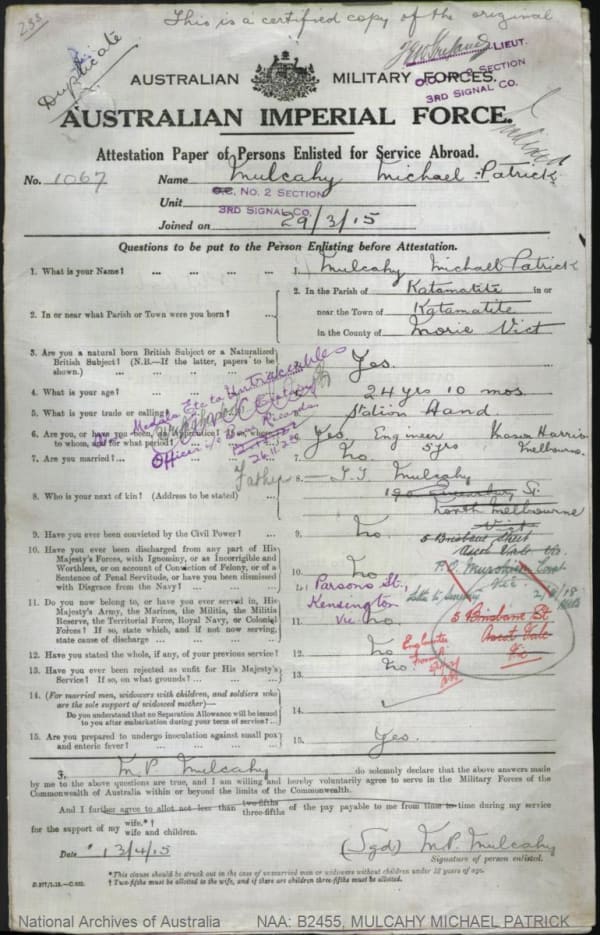 238
This is a certified copy of the original
Duplicate
LIEUT.
O.C. No 2 SECTION
3RD SIGNAL CO.
AUSTRALIAN MILITARY FORCES.
AUSTRALIAN IMPERIAL FORCE.
Attestation Paper of Persons Enlisted for Service Abroad.
No. 1067 Name Mulcahy Michael Patrick
Unit O.C. No. 2 SECTION
3RD SIGNAL CO.
Joined on 29/3/15
Questions to be put to the Person Enlisting before Attestation.
1. What is your Name? ... ... ... ... 1. Mulcahy Michael Patrick
2. In or near what Parish or Town were you born? ... 2. In the Parish of Katamatite in or
near the Town of Katamatite
in the County of Morie Vict
3. Are you a natural born British Subject or a Naturalized
British Subject? (N.B.—If the latter, papers to be
shown.) Yes.
4. What is your age? 24 yrs 10 mos.
5. What is your trade or calling? Station Hand
6. Are you, or have you been, an Apprentice? If so, where,
to whom, and for what period? Yes, Engineer Harris
5 yrs Melbourne.
7. Are you married? ... 7. No.
Medals
Untraceable
Officer i/c Base Records
26.11.20
8. Who is your next of kin? (Address to be stated) Father 8. Mulcahy
190 St.
North Melbourne
Vict
5 Brisbane Street
Ascot Vale Vic.
P.O.
Vic
Parsons St.,
Kensington
Vic
5 Brisbane St
Ascot Vale
Vic
9. Have you ever been convicted by the Civil Power? ... No
10. Have you ever been discharged from any part of His
Majesty's Forces, with Ignominy, or as Incorrigible and
Worthless, or on account of Conviction of Felony, or of a
Sentence of Penal Servitude, or have you been dismissed
with Disgrace from the Navy? ... 10. No
11. Do you now belong to, or have you ever served in, His
Majesty's Army, the Marines, the Militia, the Militia
Reserve, the Territorial Force, Royal Navy, or Colonial
Forces? If so, state which, and if not now serving,
state cause of discharge ... 11. No
12. Have you stated the whole, if any, of your previous service? 12. No
13. Have you ever been rejected as unfit for His Majesty's
Service? If so, on what grounds? ... 13. No.
14. (For married men, widowers with children, and soldiers who
are the sole support of widowed mother)—
Do you understand that no Separation Allowance will be issued
to you after embarkation during your term of service? ... 14.
15. Are you prepared to undergo inoculation against small pox
and enteric fever? ... 15. Yes.
I, M.P. Mulcahy do solemnly declare that the above answers made
by me to the above questions are true, and I am willing and hereby voluntarily agree to serve in the Military Forces of the
Commonwealth of Australia within or beyond the limits of the Commonwealth.
And I further agree to allot not less than two-fifths
three-fifths of the pay payable to me from time to time during my service
for the support of my wife.*†
wife and children.
Date 13/4/15 (Sgd) M.P. Mulcahy
Signature of person enlisted.
*This clause should be struck out in the case of unmarried men or widowers without children under 18 years of age.
† Two-fifths must be allotted to the wife, and if there are children three-fifths must be allotted.
National Archives of Australia NAA: B2455, MULCAHY MICHAEL PATRICK